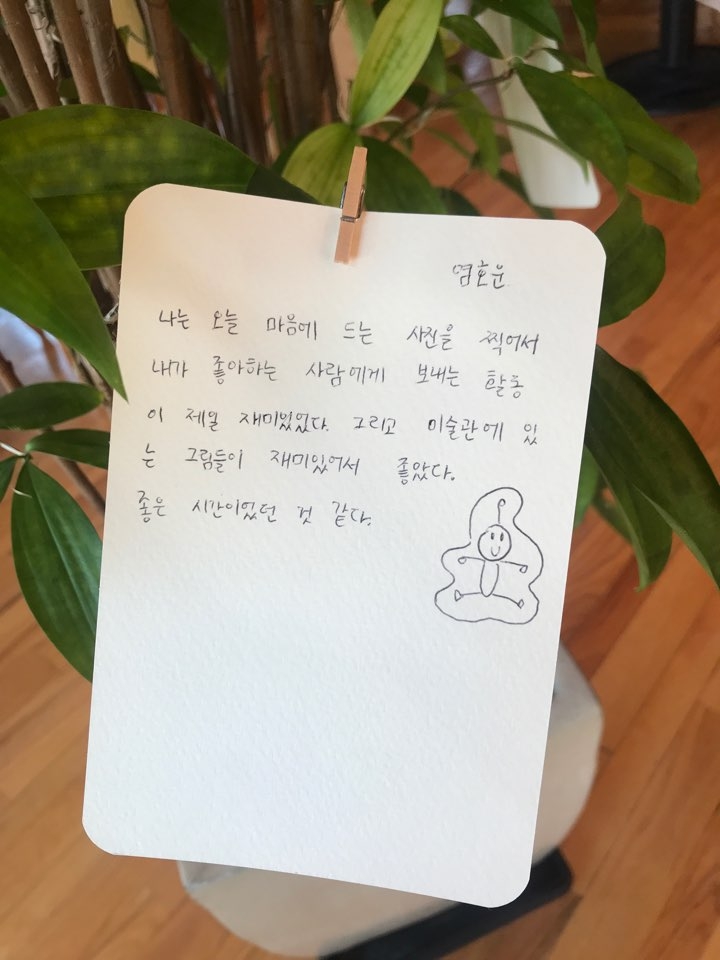 염호윤
나는 오늘 마음에 드는 사진을 찍어서
내가 좋아하는 사람에게 보내는 활동
이 제일 재미있었다. 그리고 미술관에 있
는 그림들이 재미있어서 좋았다.
좋은 시간이었던 것 같다.